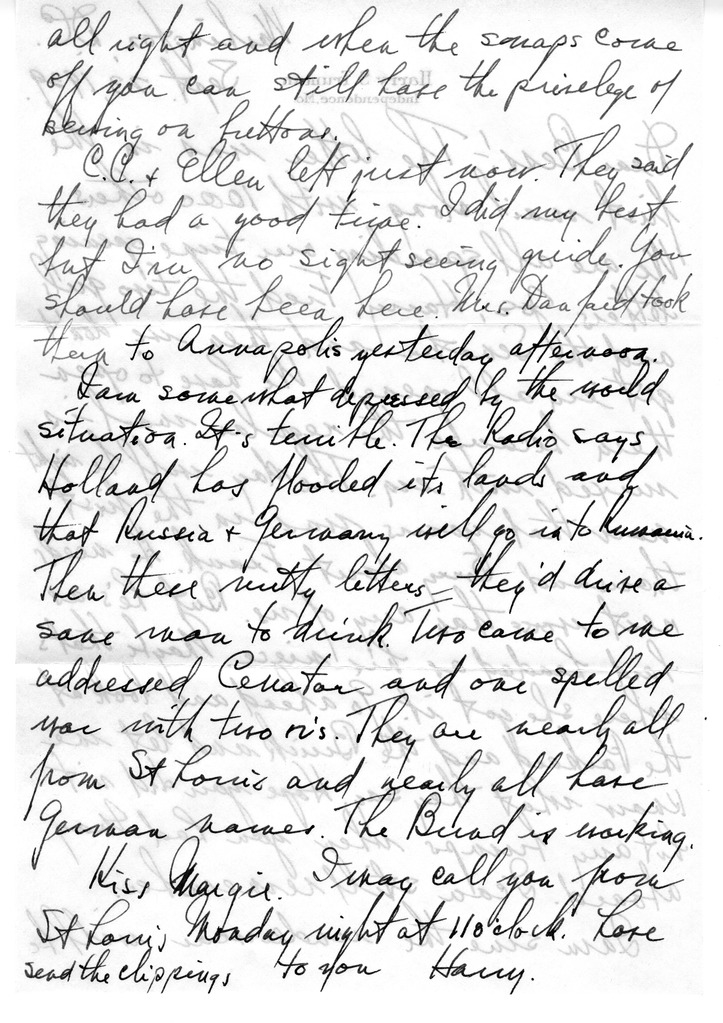 all right and when the snaps come
off you can still have the privelege of
sewing on buttons.
C.C. + Ellen left just now. They said
they had a good time. I did my best
but I'm no sight seeing guide. You
should have been here. Mrs. Danford took
them to Annapolis yesterday afternoon.
I am somewhat depressed by the world
situation. It's terrible. The Radio says
Holland has flooded its lands and
that Russia + Germany will go in to Rumania.
Then these nutty letters – they'd drive a
sane man to drink. Two came to me
addressed Cenator and one spelled
war with two r's. They are nearly all
from St Louis and nearly all have
German names. The Bund is working.
Kiss Margie. I may call you from
St Louis Monday night at 11 o'clock. Love
send the clippings to you Harry.